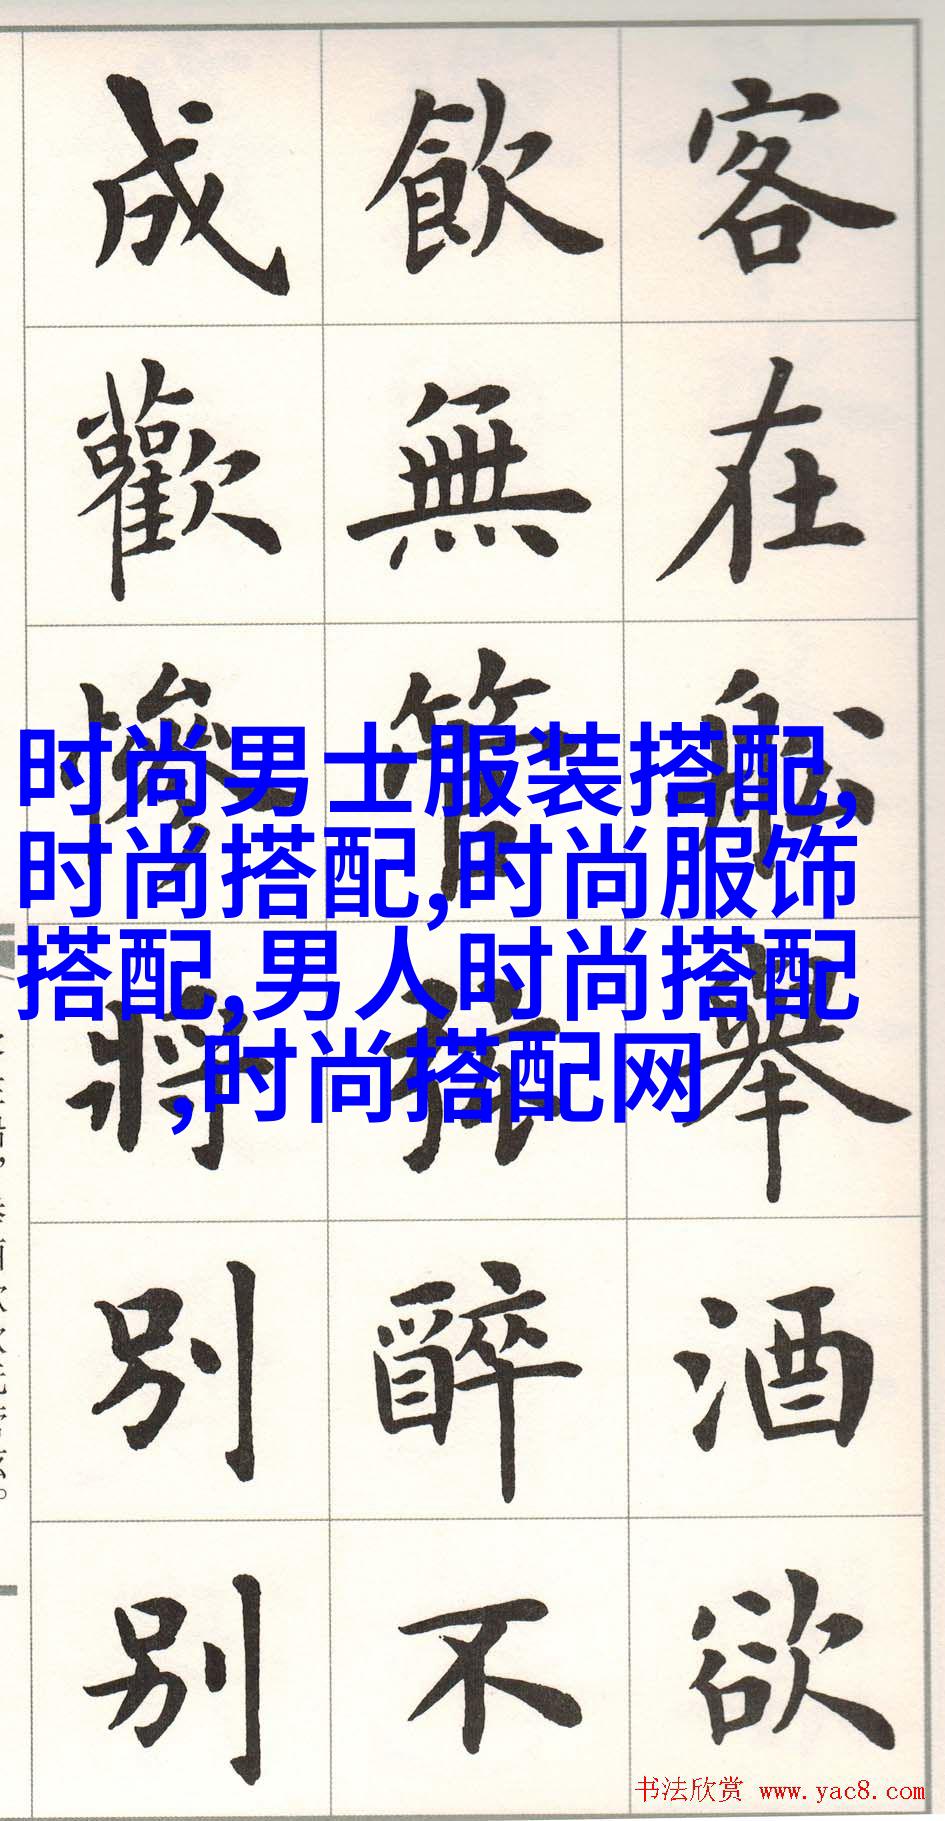 客在船舉酒欲
飲無管絃醉不
成歡慘將別別
时尚男士服装搭配,
时尚搭配,时尚服饰
搭配,男人时尚搭配
,时尚搭配网
书法欣赏 www.yac8.com